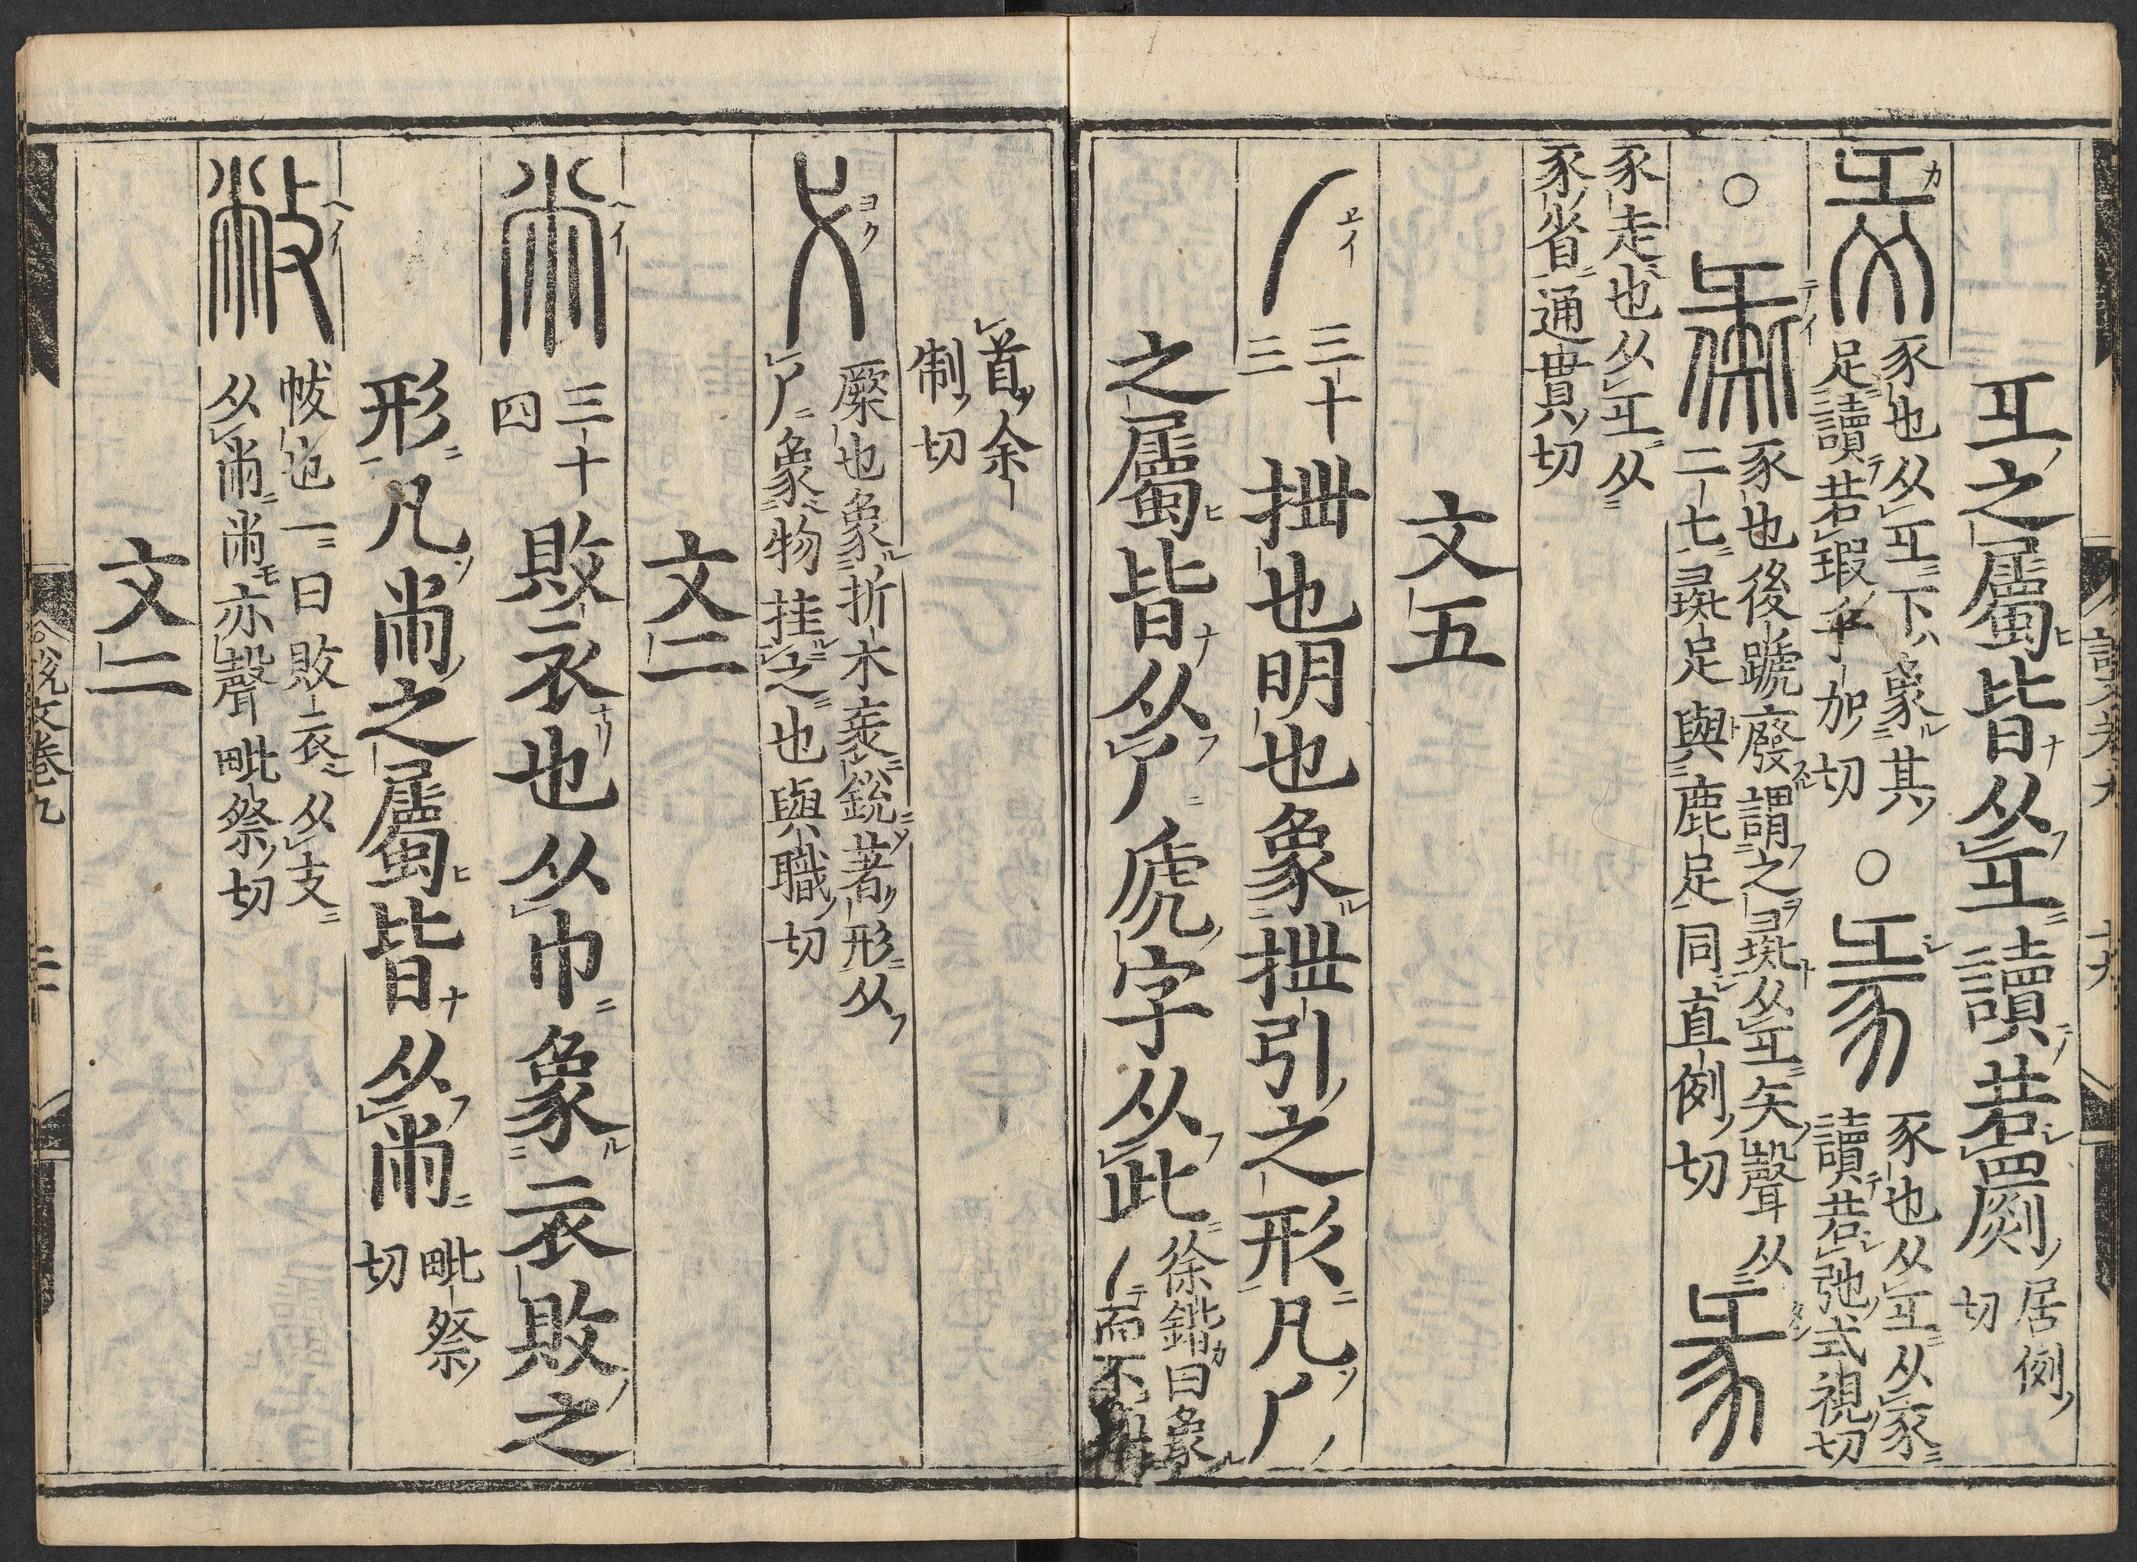 彑之屬皆从彑讀若罽居例切
豕也从彑下象其足讀若瑕乎加切○彖豕也从彑从豕讀若弛式視切
○彘豕也後蹏廢謂之彘从彑矢聲从二匕彘足與鹿足同直例切彖
豕走也从彑从豕省通貫切
文五
厂三十三抴也明也象抴引之形凡厂
之屬皆从厂虒字从此徐鍇曰象丿而不
首余制切
弋橜也象折木衺銳著形从厂象物挂之也與職切
文二
㡀三十四敗衣也从巾象衣敗之
形凡㡀之屬皆从㡀毗祭切
敝帗也一曰敗衣从支从㡀㡀亦聲毗祭切
文二
說文卷九